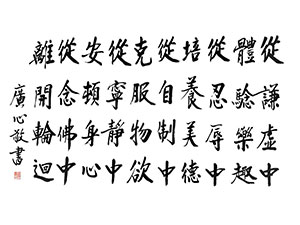 從謙虛中
體驗樂趣
從忍辱中
培養美德
從自制中
克服物欲
從寧靜中
安頓身心
從念佛中
離開輪迴
廣心敬書